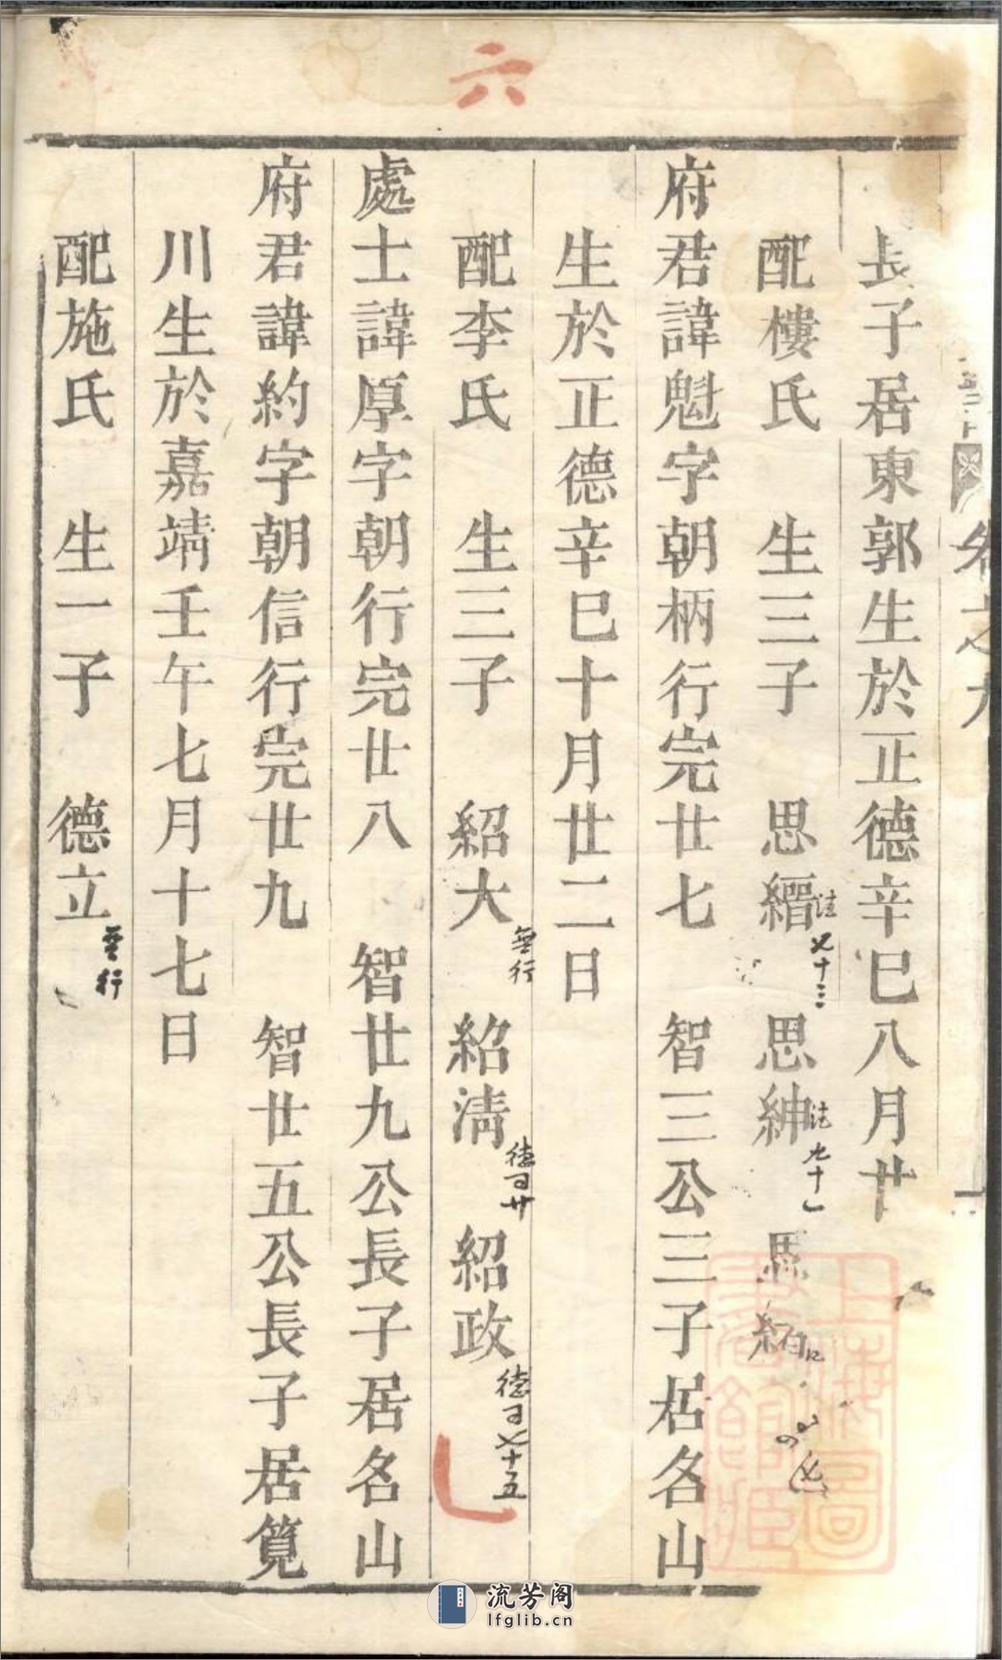 六
卷之九
長子居東郭生於正德辛巳八月廿
配樓氏 生三子 思縉 思紳 思紹
府君諱魁字朝柄行完廿七 智三公三子居名山
生於正德辛巳十月廿二日
配李氏 生三子 紹大 無行 紹清 德日廿 紹政 德日七十五
處士諱厚字朝行完廿八 智廿九公長子居名山
府君諱約字朝信行完廿九 智廿五公長子居筧
川生於嘉靖壬午七月十七日
配施氏 生一子 德立 無行
上海圖書館藏
流芳阁
lfglib.cn